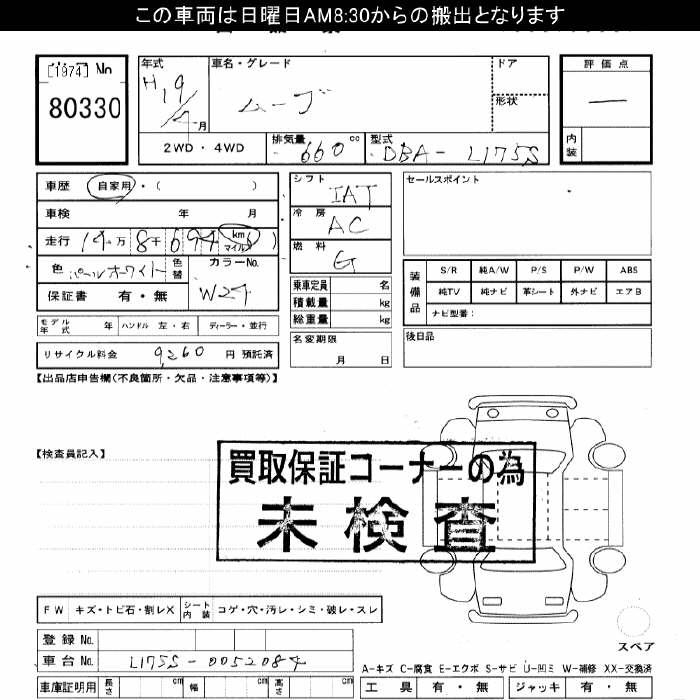 この車両は日曜日AM8:30からの搬出となります
[1974] No
80330
年式
H19/4月
車名・グレード
ムーブ
ドア
形状
評価点
―
内装
2WD・4WD
排気量 660 cc
型式 DBA- L175S
車歴 自家用・( )
車検 年 月
走行 14万8千694 km マイル
色 パールホワイト 色替
カラーNo. W24
保証書 有・無
シフト IAT
冷房 AC
燃料 G
乗車定員 名
積載量 kg
総重量 kg
名変期限
月 日
セールスポイント
装備品
S/R 純A/W P/S P/W ABS
純TV 純ナビ 革シート 外ナビ エアB
ナビ型番:
後日品
モデル年式 年 ハンドル 左・右 ディーラー・並行
リサイクル料金 9,260 円 預託済
【出品店申告欄(不良箇所・欠品・注意事項等)】
【検査員記入】
買取保証コーナーの為
未検査
FW キズ・トビ石・割レX
シート内装 コゲ・穴・汚レ・シミ・破レ・スレ
登録No.
車台No. L175S-0052084
車庫証明用 長さ cm 幅 cm 高さ cm
スペア
A-キズ C-腐食 E-エクボ S-サビ U-凹ミ W-補修 XX-交換済
工具 有・無 ジャッキ 有・無